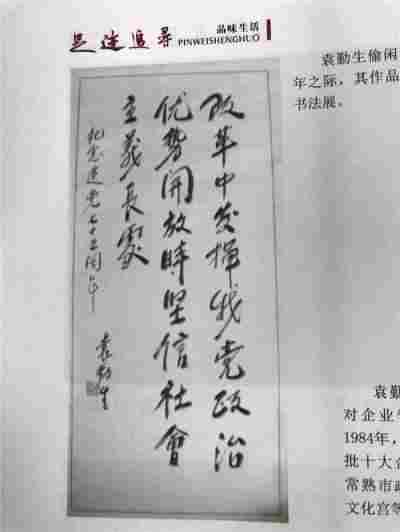 足迹追寻
品味生活
PINWEISHENGHUO
改革中发揮我党政治
优势開放時坚信社會
主義長
纪念建党七十五周年
袁勤生
袁勤生偷闲
年之际，其作品
书法展。
袁勤
对企业
1984年，
批十大
常熟市政
文化宫等